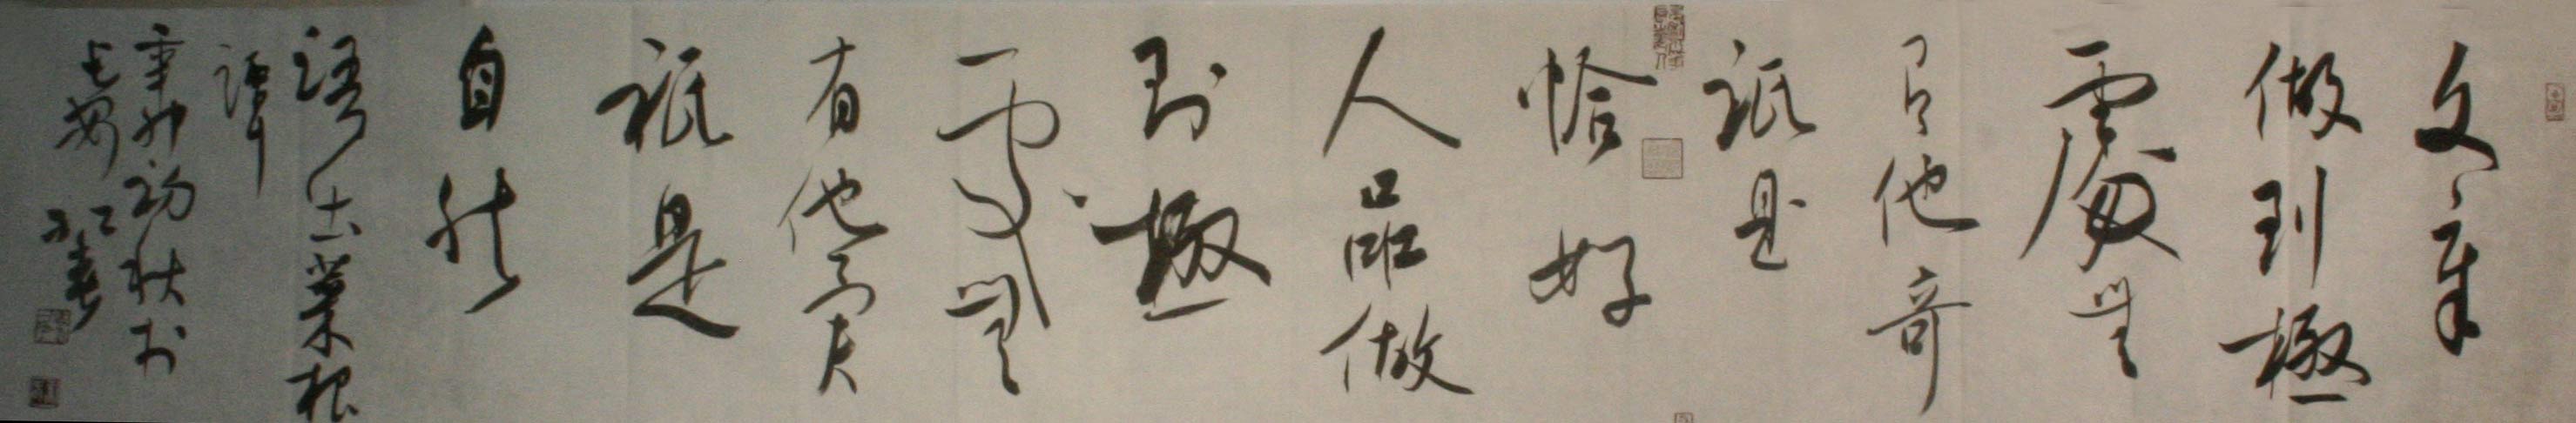 文章
做到極
處無
有他奇
祇是
恰好
人品做
到極
處無
有他異
祇是
自然
語出菜根
譚
辛卯初秋於
長安